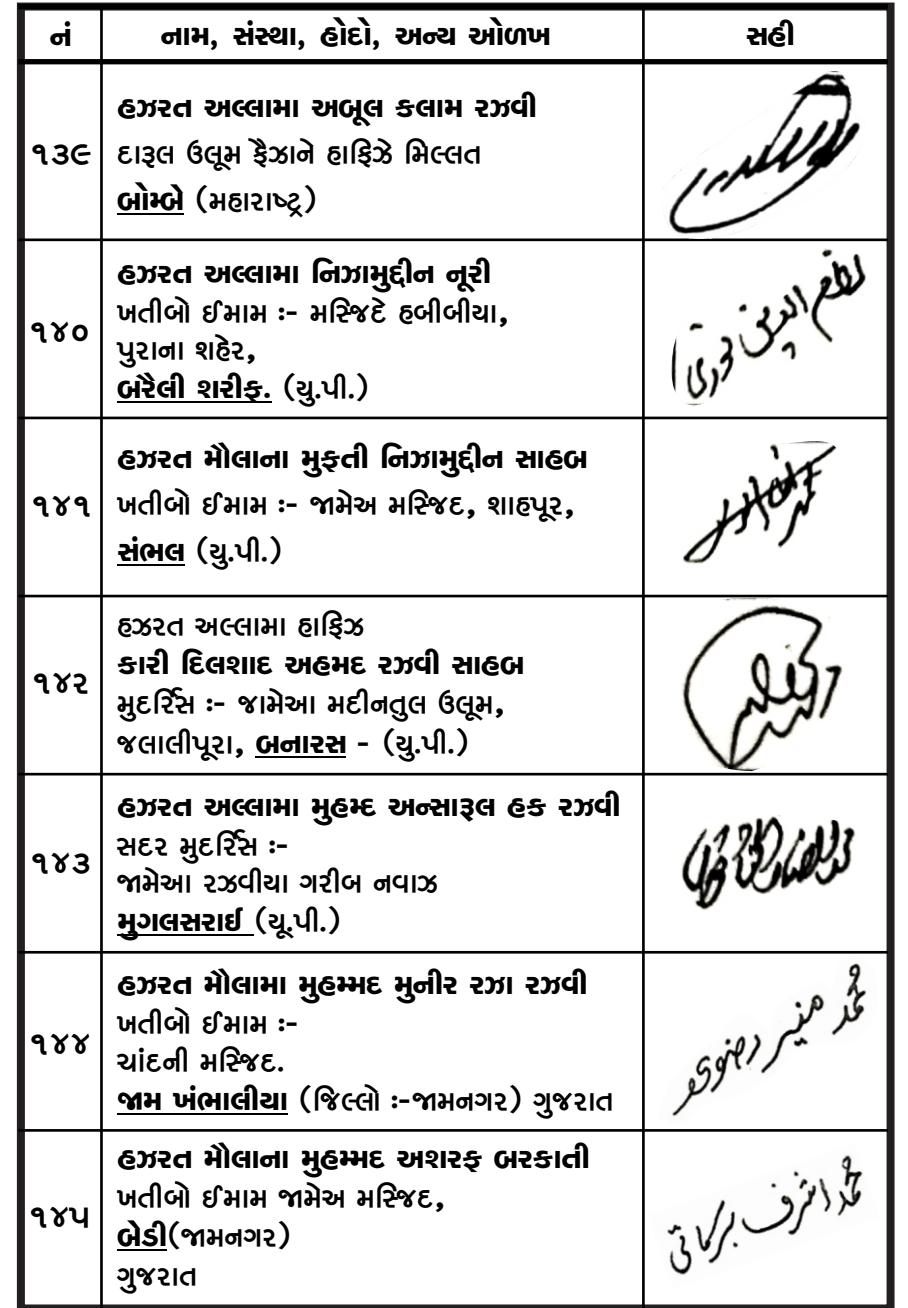 નં નામ, સંસ્થા, હોદો, અન્ય ઓળખ સહી
૧૩૯
હઝરત અલ્લામા અબૂલ કલામ રઝવી
દારૂલ ઉલૂમ ફૈઝાને હાફિઝે મિલ્લત
બોમ્બે (મહારાષ્ટ્ર)
૧૪૦
હઝરત અલ્લામા નિઝામુદ્દીન નૂરી
ખતીબો ઈમામ :- મસ્જિદે હબીબીયા,
પુરાના શહેર,
બરૈલી શરીફ. (યુ.પી.)
نظام الدین نوری
૧૪૧
હઝરત મૌલાના મુફતી નિઝામુદ્દીન સાહબ
ખતીબો ઈમામ :- જામેઅ મસ્જિદ, શાહપૂર,
સંભલ (યુ.પી.)
૧૪૨
હઝરત અલ્લામા હાફિઝ
કારી દિલશાદ અહમદ રઝવી સાહબ
મુદર્રિસ :- જામેઆ મદીનતુલ ઉલૂમ,
જલાલીપૂરા, બનારસ - (યુ.પી.)
૧૪૩
હઝરત અલ્લામા મુહમ્દ અન્સારૂલ હક રઝવી
સદર મુદર્રિસ :-
જામેઆ રઝવીયા ગરીબ નવાઝ
મુગલસરાઈ (યૂ.પી.)
૧૪૪
હઝરત મૌલામા મુહમ્મદ મુનીર રઝા રઝવી
ખતીબો ઈમામ :-
ચાંદની મસ્જિદ.
જામ ખંભાલીયા (જિલ્લો :-જામનગર) ગુજરાત
محمد منیر رضوی
૧૪૫
હઝરત મૌલાના મુહમ્મદ અશરફ બરકાતી
ખતીબો ઈમામ જામેઅ મસ્જિદ,
બેડી(જામનગર)
ગુજરાત
محمد اشرف برکاتی